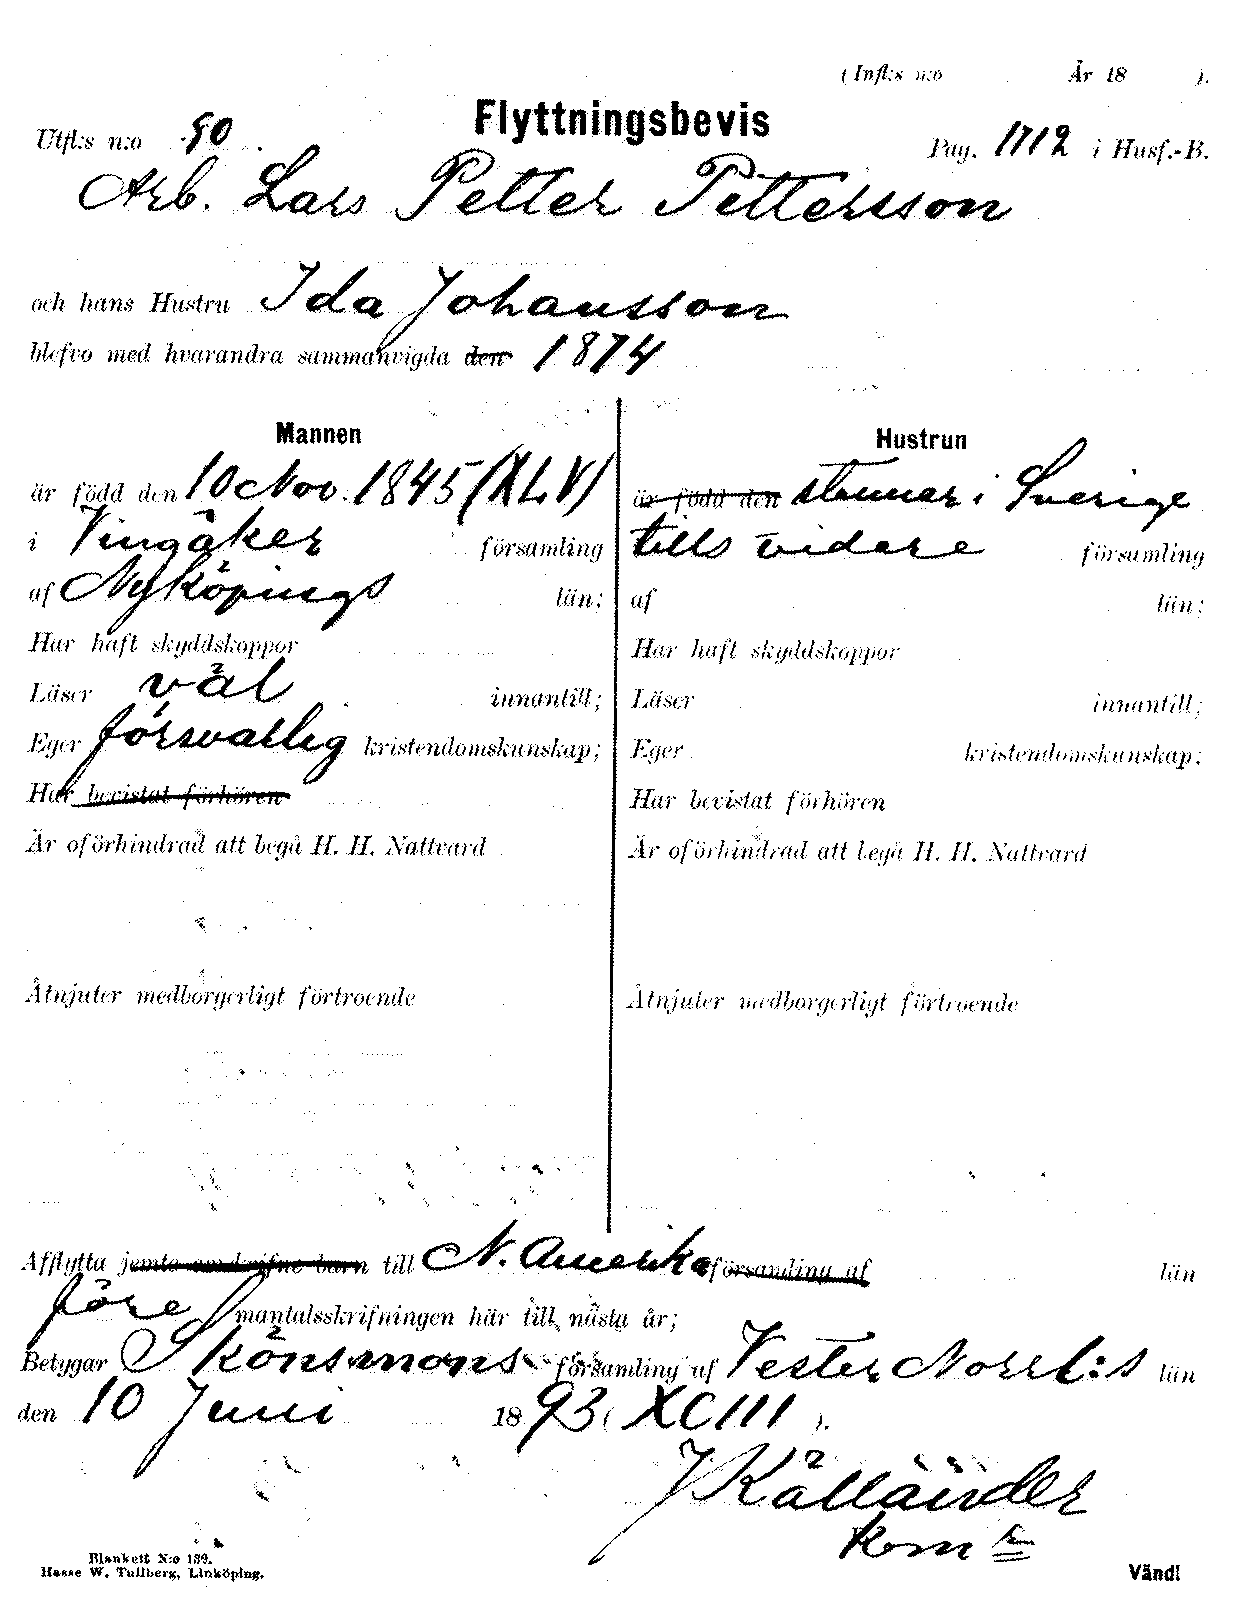 (Infl:s n:o År 18 ).
Flyttningsbevis
Utfl:s n:o 90. Pag. 1712 i Husf.-B.
Arb. Lars Petter Pettersson
och hans Hustru Ida Johansson
blefvo med hvarandra sammanvigda den 1874
Mannen
är född den 10 Nov. 1845 (XLV)
i Vingåker församling
af Nyköpings län;
Har haft skyddskoppor
Läser väl innantill;
Eger försvarlig kristendomskunskap;
Har bevistat förhören
Är oförhindrad att begå H. H. Nattvard
Åtnjuter medborgerligt förtroende
Hustrun
är född den stannar i Sverige
tills vidare församling
af län;
Har haft skyddskoppor
Läser innantill;
Eger kristendomskunskap;
Har bevistat förhören
Är oförhindrad att begå H. H. Nattvard
Åtnjuter medborgerligt förtroende
Afflytta jemte omskrifne barn till N. Amerika församling af län
före mantalsskrifningen här till nästa år;
Betygar Skönsmons församling af Vester Norrl:s län
den 10 Juni 1893 (XCIII).
J Källander
kom:r
Blankett N:o 139.
Hasse W. Tullberg, Linköping.
Vänd!